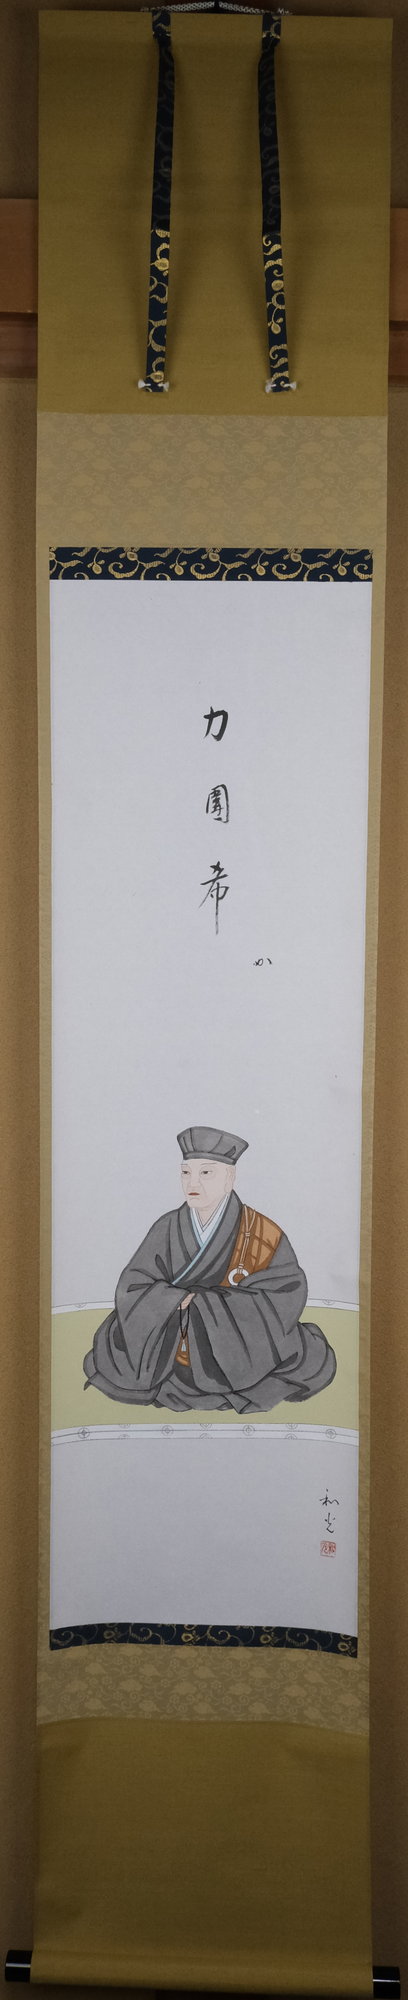 力
圍
希
和光